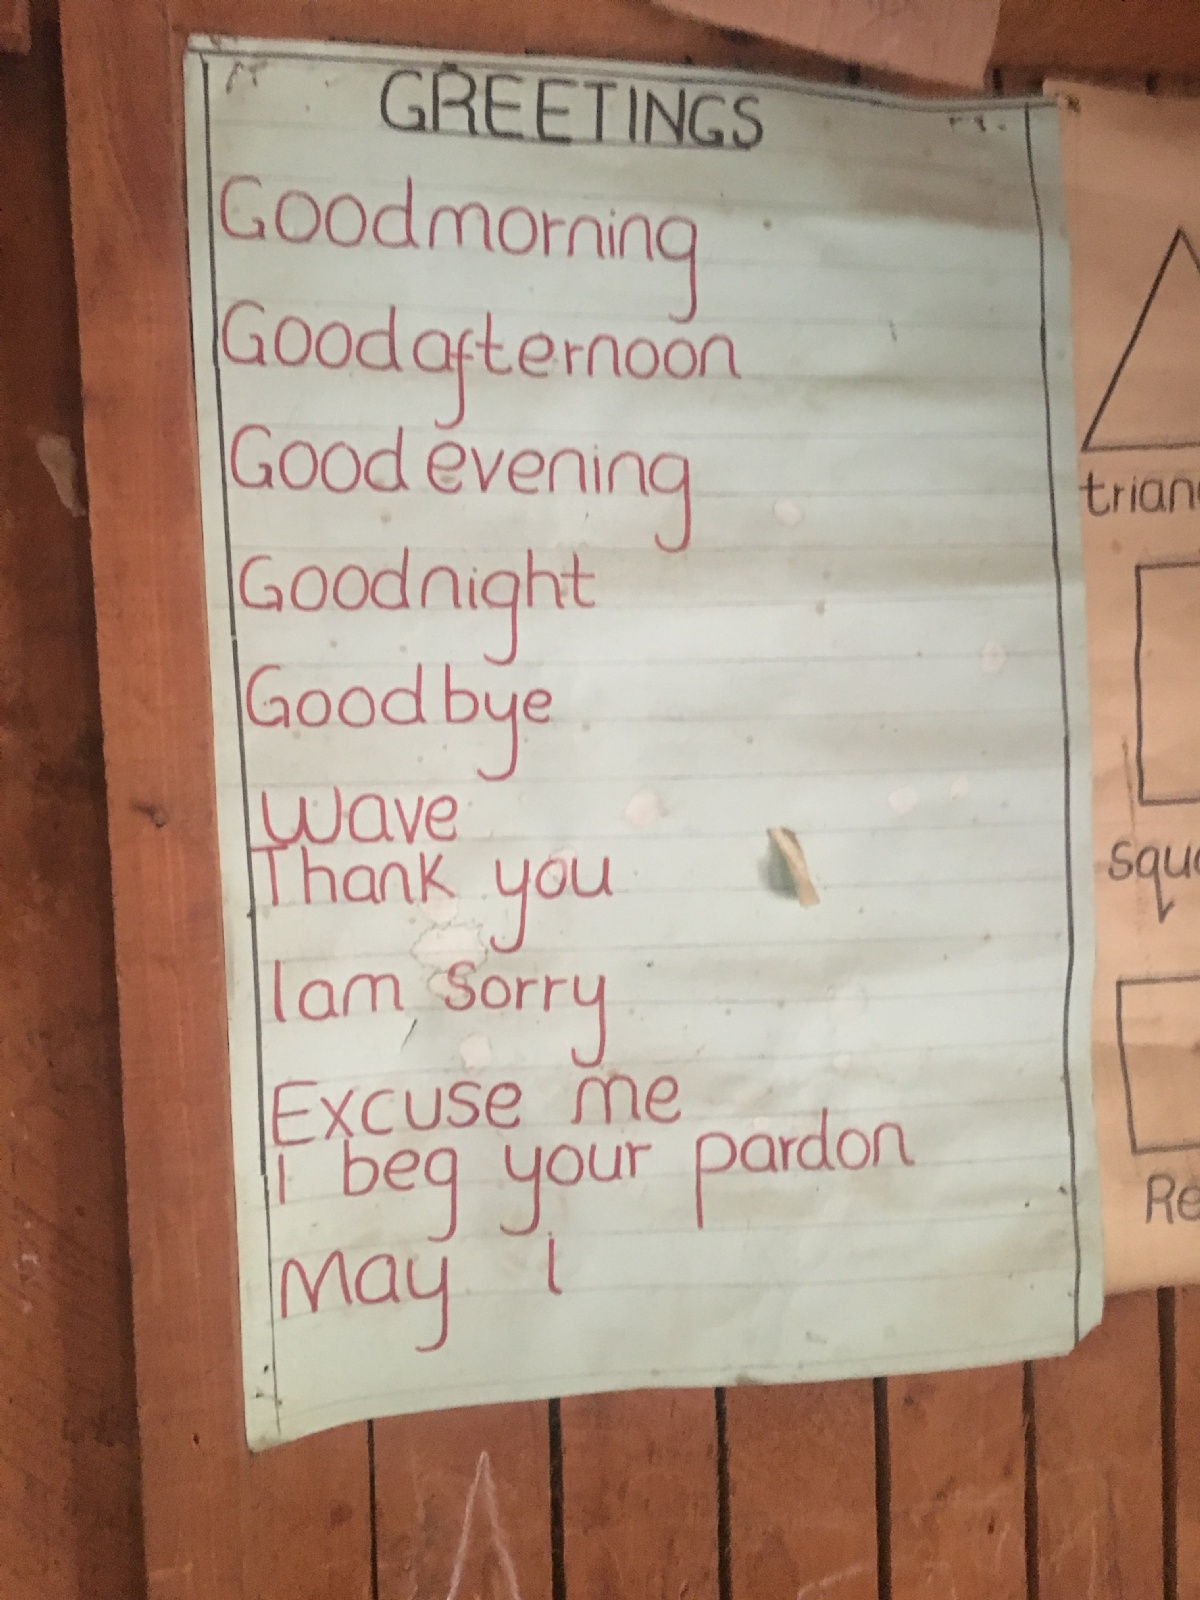 GREETINGS
Goodmorning
Good afternoon
Good evening
Goodnight
Good bye
Wave
Thank you
I am Sorry
Excuse me
I beg your pardon
May i
trian
squ
Re